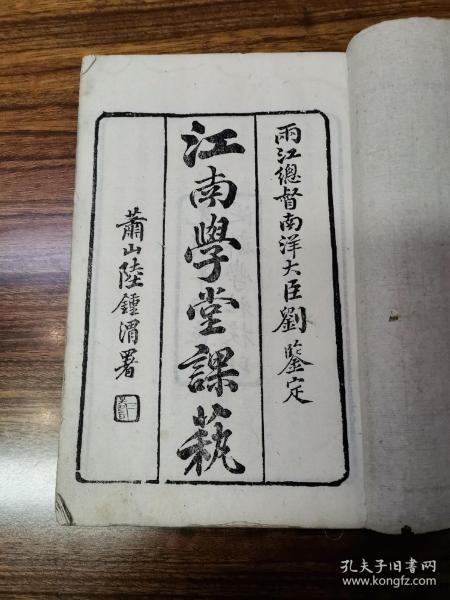 兩江總督南洋大臣劉鑒定
江南學堂課藝
蕭山陸鍾渭署
孔夫子旧书网
www.kongfz.com